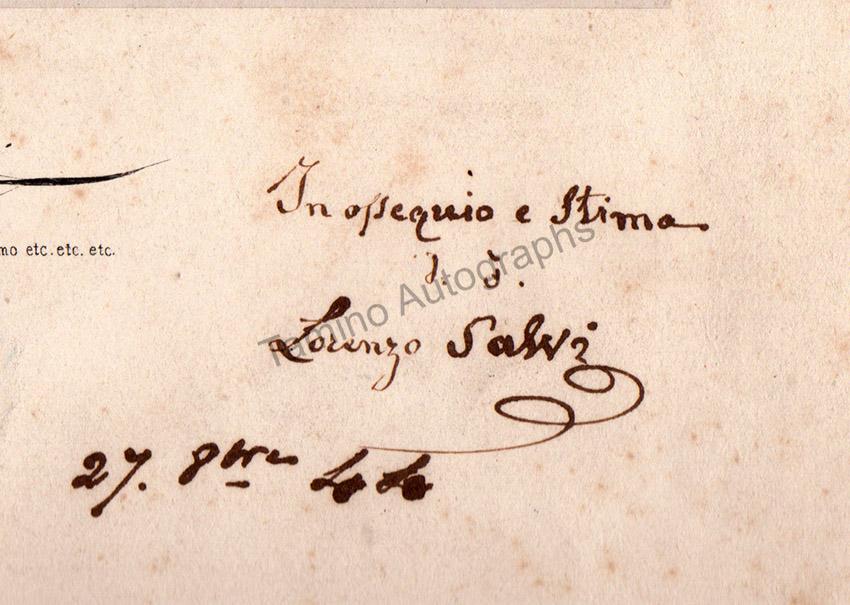 mo etc. etc. etc.
In ossequio e Stima
Lorenzo Salvi
27. 8bre 44
Tamino Autographs